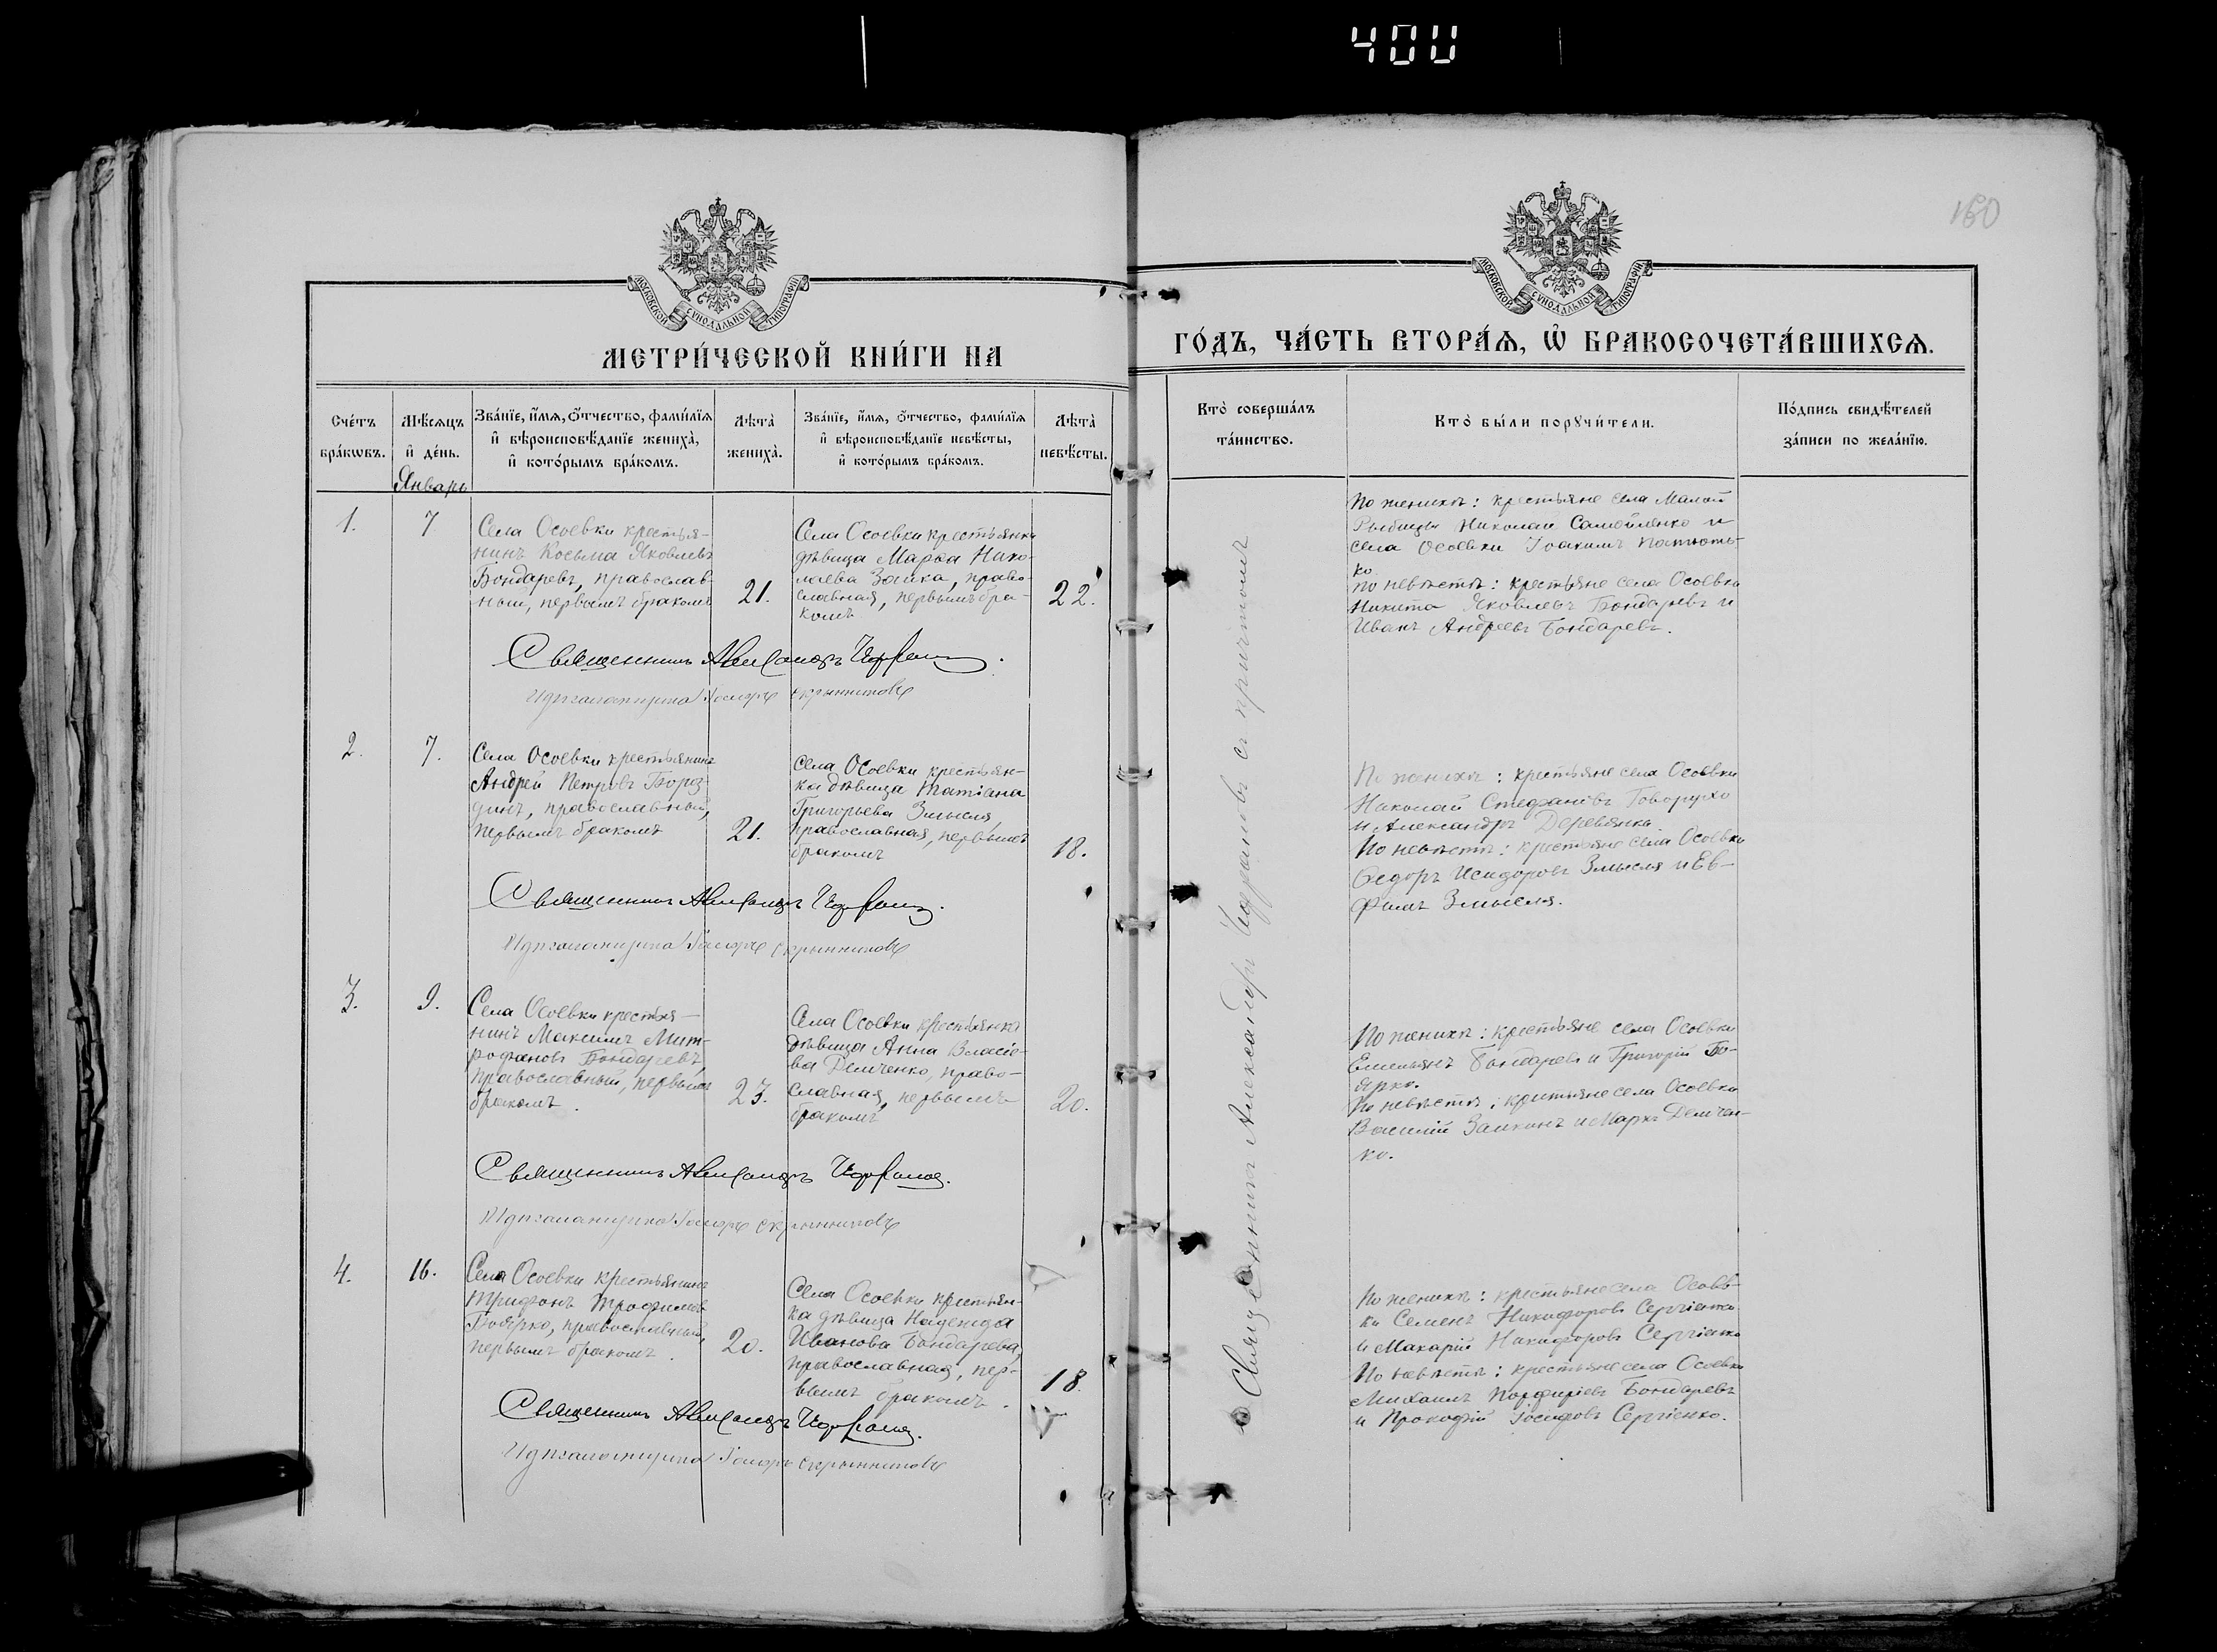 400
160
МОСКОВСКОЙ СУНОДАЛЬНОЙ ТИПОГРАФІИ
МОСКОВСКОЙ СУНОДАЛЬНОЙ ТИПОГРАФІИ
МЕТРИ́ЧЕСКОЙ КНИ́ГИ НА
ГО́ДЪ, ЧА́СТЬ ВТОРА́Ѧ, Ѡ҆ БРАКОСОЧЕТА́ВШИХСѦ.
Сче́тъ
бра́кѡвъ.
Мѣ́сѧцъ
и҆ де́нь.
Зва́нїе, и҆́мѧ, ѻ҆́тчество, фами́лїѧ
и҆ вѣроисповѣ́данїе жениха̀,
и҆ кото́рымъ бра́комъ.
Лѣта̀
жениха̀.
Зва́нїе, и҆́мѧ, ѻ҆́тчество, фами́лїѧ
и҆ вѣроисповѣ́данїе невѣ́сты,
и҆ кото́рымъ бра́комъ.
Лѣта̀
невѣ́сты.
Кто̀ соверша́лъ
та́инство.
Кто̀ бы́ли порꙋчи́тели.
По́дпись свидѣ́телей
за́писи по жела́нїю.
Январь
1.
7
Села Осоевки крестья-
нинъ Косьма Яковлевъ
Бондаревъ, православ-
ный, первымъ бракомъ
21.
Села Осоевки крестьянка
дѣвица Марѳа Нико-
лаева Заика, право-
славная, первымъ бра-
комъ
22.
По женихѣ: крестьяне села Малой
Рыбицы Николай Самойленко и
села Осоевки Іоакимъ
ко.
по невѣстѣ: крестьяне села Осоевки
Никита Яковлевъ Бондаревъ и
Иванъ Андреевъ Бондаревъ.
Священникъ Александръ
Скрынниковъ
2.
7.
Села Осоевки крестьянинъ
Андрей Петровъ Бороз
динъ, православный,
первымъ бракомъ
21.
села Осоевки крестьян-
ка дѣвица Татіана
Григорьева Змысля,
православная, первымъ
бракомъ
18.
По женихѣ: крестьяне села Осоевки
Николай Стефановъ Говорухо
и Александръ Деревянко.
По невѣстѣ: крестьяне села Осоевки
Ѳедоръ Исидоровъ Змысля и Ев-
фимъ Змысля.
Священникъ Александръ
Скрынниковъ
3.
9.
Села Осоевки крестья-
нинъ Максимъ Мит-
рофановъ Бондаревъ,
православный, первымъ
бракомъ.
23.
Села Осоевки крестьянка
дѣвица Анна Власіе-
ва Демченко, право-
славная, первымъ
бракомъ
20.
По женихѣ: крестьяне села Осоевки
Емельянъ Бондаревъ и Григорій Бо-
ярко.
По невѣстѣ: крестьяне села Осоевки
Василій Заикинъ и Маркъ Демчен-
ко.
Священникъ Александръ
Скрынниковъ
4.
16.
Села Осоевки крестьянинъ
Трифонъ Трофимовъ
Боярко, православный
первымъ бракомъ.
20.
Села Осоевки крестьян-
ка дѣвица Надежда
Иванова Бондарева,
православная, пер-
вымъ бракомъ.
18.
По женихѣ: крестьяне села Осоев-
ки Семенъ Никифоровъ Сергіенко
и Макарій Никифоровъ Сергіенко
По невѣстѣ: крестьяне села Осоевки
Михаилъ Порфиріевъ Бондаревъ
и Прокофій Іосифовъ Сергіенко.
Священникъ Александръ
Скрынниковъ
Священникъ Александръ съ причтомъ